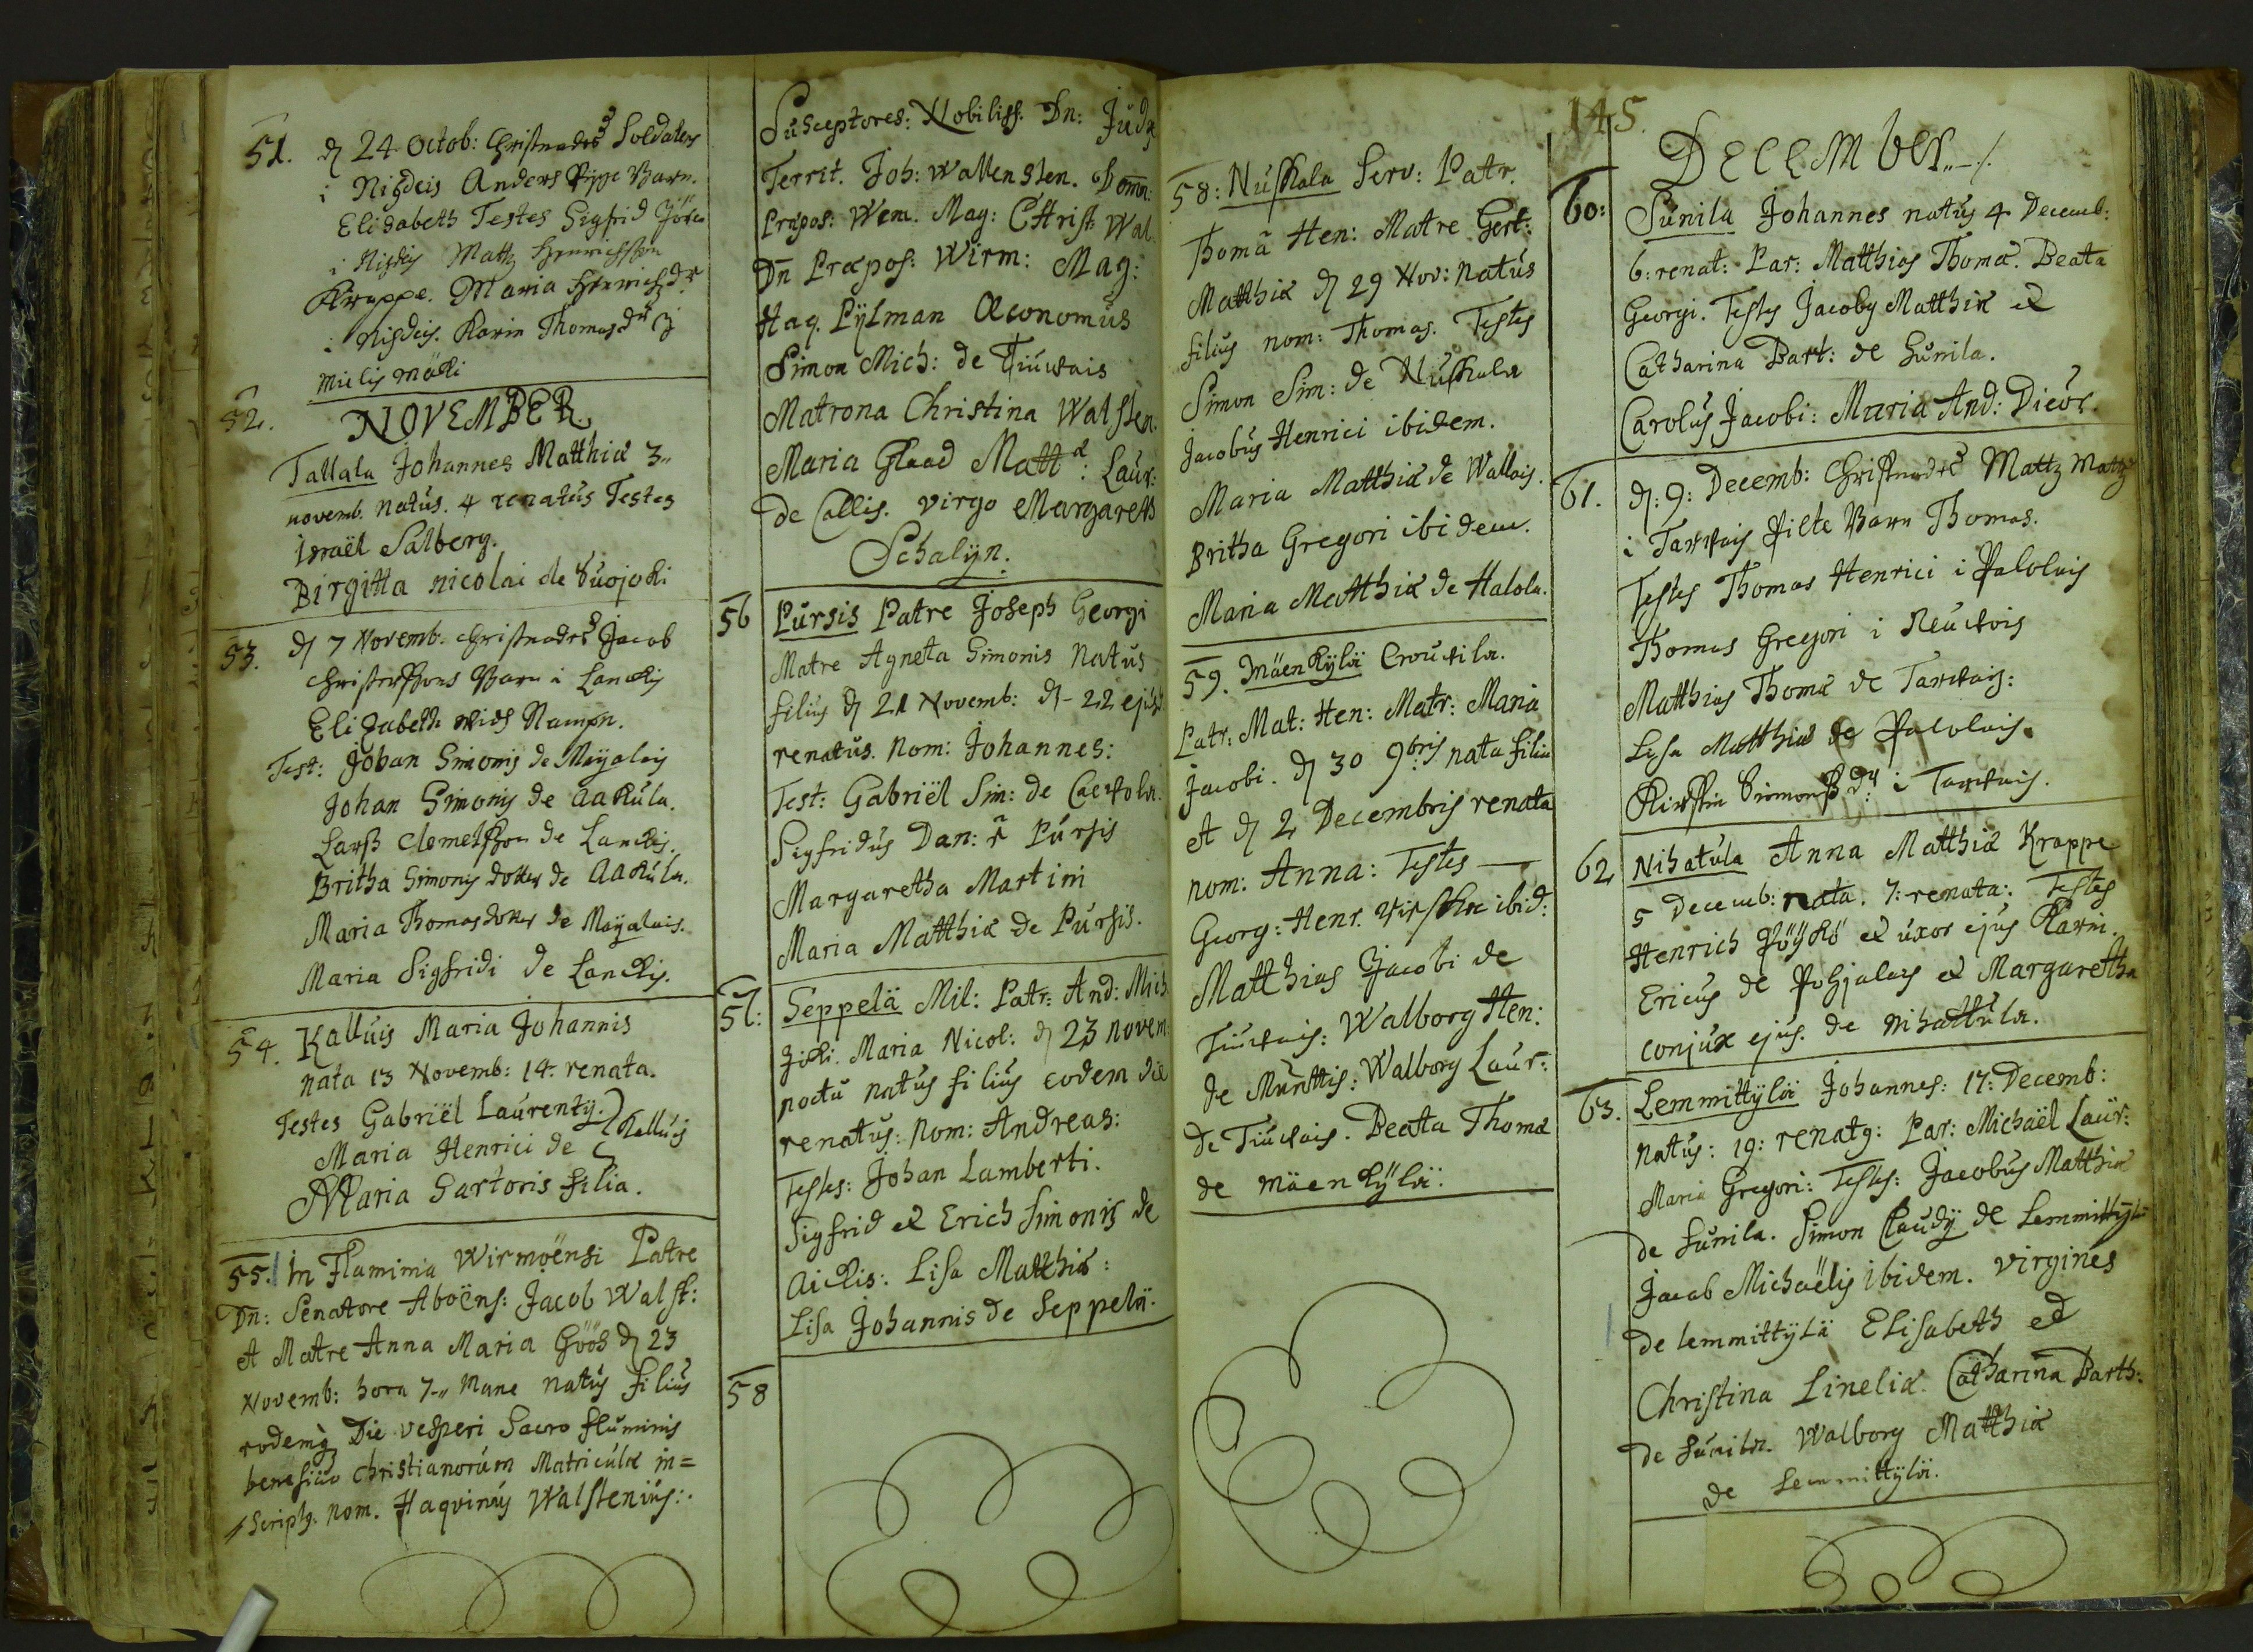 51. d 24 Octob: Christnades Soldatens
i Nisdeis Anders Barn.
Elisabeth Testes Sigfrid
i Nisdeis Matz Henrichsson
Krappe. Maria Henrichsdr
i Nisdeis. Karin Thomasdr i
Mielis mäki
52. NOVEMBER
Tallala Johannes Matthiæ 3
novemb. natus. 4 renatus Testes
Israël Salberg.
Birgitta nicolai de Suojoki
53. d 7 Novemb. christnades Jacob
Christerssons Barn i Lanckis
Elizabeth widh Nampn.
Test: Johan Simonis de Mayalais
Johan Simonis de Aakula.
Larss Clemetsson de Lanckis.
Britha Simonis dotter de Aakula.
Maria Thomasdotter de Mayalais.
Maria Sigfridi de Lanckis.
54. Kalluis Maria Johannis
nata 13 Novemb: 14. renata.
Testes Gabriël Laurentij.
Maria Henrici de Kalluis
Maria Sartoris filia.
55. In Flaminia Wirmoënsi Patre
Dn: Senatore Aboëns: Jacob Walst:
et Matre Anna Maria Göös d 23
Novemb: hora 7 Mane natus filius
eodemq Die vesperi Sacro fluminis
beneficio Christianorum Matriculæ in=
script9. nom. Haqvinus Walstenius:.
Susceptores: Nobiliss. Dn: Judx
Territ. Joh: Wallensten. Domn:
Præpos: Wem. Mag: Christ: Wal
Dn Præpos: Wirm: Mag:
Haq. Pylman Œconomus
Simon Mich: de Tiuckais
Matrona Christina Walsten.
Maria Glaad Matt: Laur:
de Callis. virgo Margareth
Schalyn.
56 Pursis Patre Joseph Georgi
Matre Agneta Simonis Natus
filius d 21 Novemb: d 22 ejusd
renatus. Nom: Johannes:
Test: Gabriël Sim: de Caevola.
Sigfridus Dan: Pursis
Margaretha Martini
Maria Matthiæ de Pursis.
57: Seppelä Mil: Patr: And: Mich
Maria Nicol: d 23 Novem:
noctu natus filius eodem die
renatus: Nom: Andreas:
Testes: Johan Lamberti.
Sigfrid et Erich Simonis de
Aickis: Lisa Matthiæ:
Lisa Johannis de Seppelä.
58
58: Nuskala Serv: Patr.
Thomâ Hen: Matre Gert:
Matthiæ d 29 Nov: Natus
filius nom: Thomas. Testes
Simon Sim: de Nuskala
Jacobus Henrici ibidem.
Maria Matthiæ de Wallais.
Britha Gregori ibidem.
Maria Matthiæ de Halola.
59. Mäenkylä Crouvila.
Patr: Mat: Hen: Matr: Maria
Jacobi. d 30 9bris nata filia
et d 2 Decembris renata
nom: Anna: Testes
Georg: Henr. ibid:
Matthias Jacobi de
Tiuckais: Walborg Hen:
de Munttis: Walborg Laur:
de Tiuckais. Beata Thomæ
de Mäenkylä:
145.
DECEMBER
60: Sunila Johannes natus 4 Decemb:
6: renat: Par: Matthias Thomæ. Beata
Georgi. Testes Jacobus Matthiæ et
Catharina Bart: de Sunila.
Carolus Jacobi: Maria And:
61. d: 9: Decemb: Christnades Mattz Matz
i Tarvais Pilte Barn Thomas.
Testes Thomas Henrici i Palolais
Thomas Gregori i
Matthias Thomæ de Tarvais:
Lisa Matthiæ de Palolais.
Kirstin Simonss dr i Tarvais.
62 Nihatula Anna Matthiæ Krappe
5 Decemb: nata. 7: renata: Testes
Henrich Pöykö et uxor ejus Karin.
Ericus de Pohjalais et Margaretha
conjux ejus. de Nihattula.
63. Lemmittylä Johannes: 17: Decemb:
natus: 19: renat9: Par: Michaël Laur:
Maria Gregori: Testes: Jacobus Matthiæ
de Sunila. Simon Claudij de Lemmittylä
Jacob Michaëlis ibidem. Virgines
de lemmittylä Elisabeth et
Christina Lineliæ. Catharina Barth:
de Sunila. Walborg Matthiæ
de Lemmittylä.